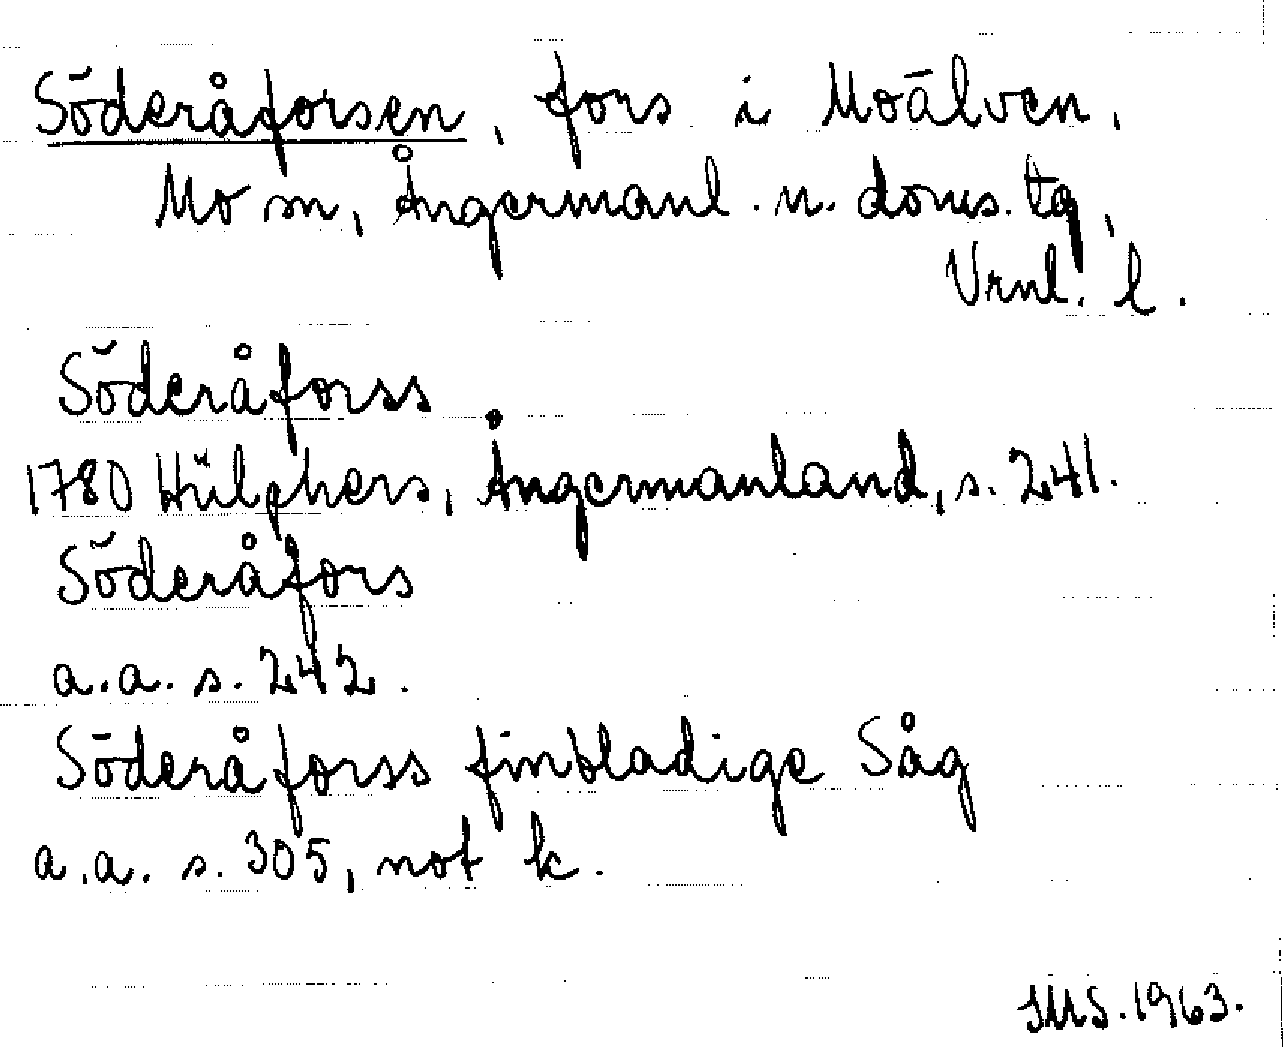 Söderåforsen, fors i Moälven,
Mo sn, Ångermanl. n. doms. tg,
Vrnl. l.
Söderåforss
1780 Hülphers, Ångermanland, s. 241.
Söderåfors
a.a. s. 242.
Söderåforss finbladige Såg
a.a. s. 305, not k.
SMS. 1963.